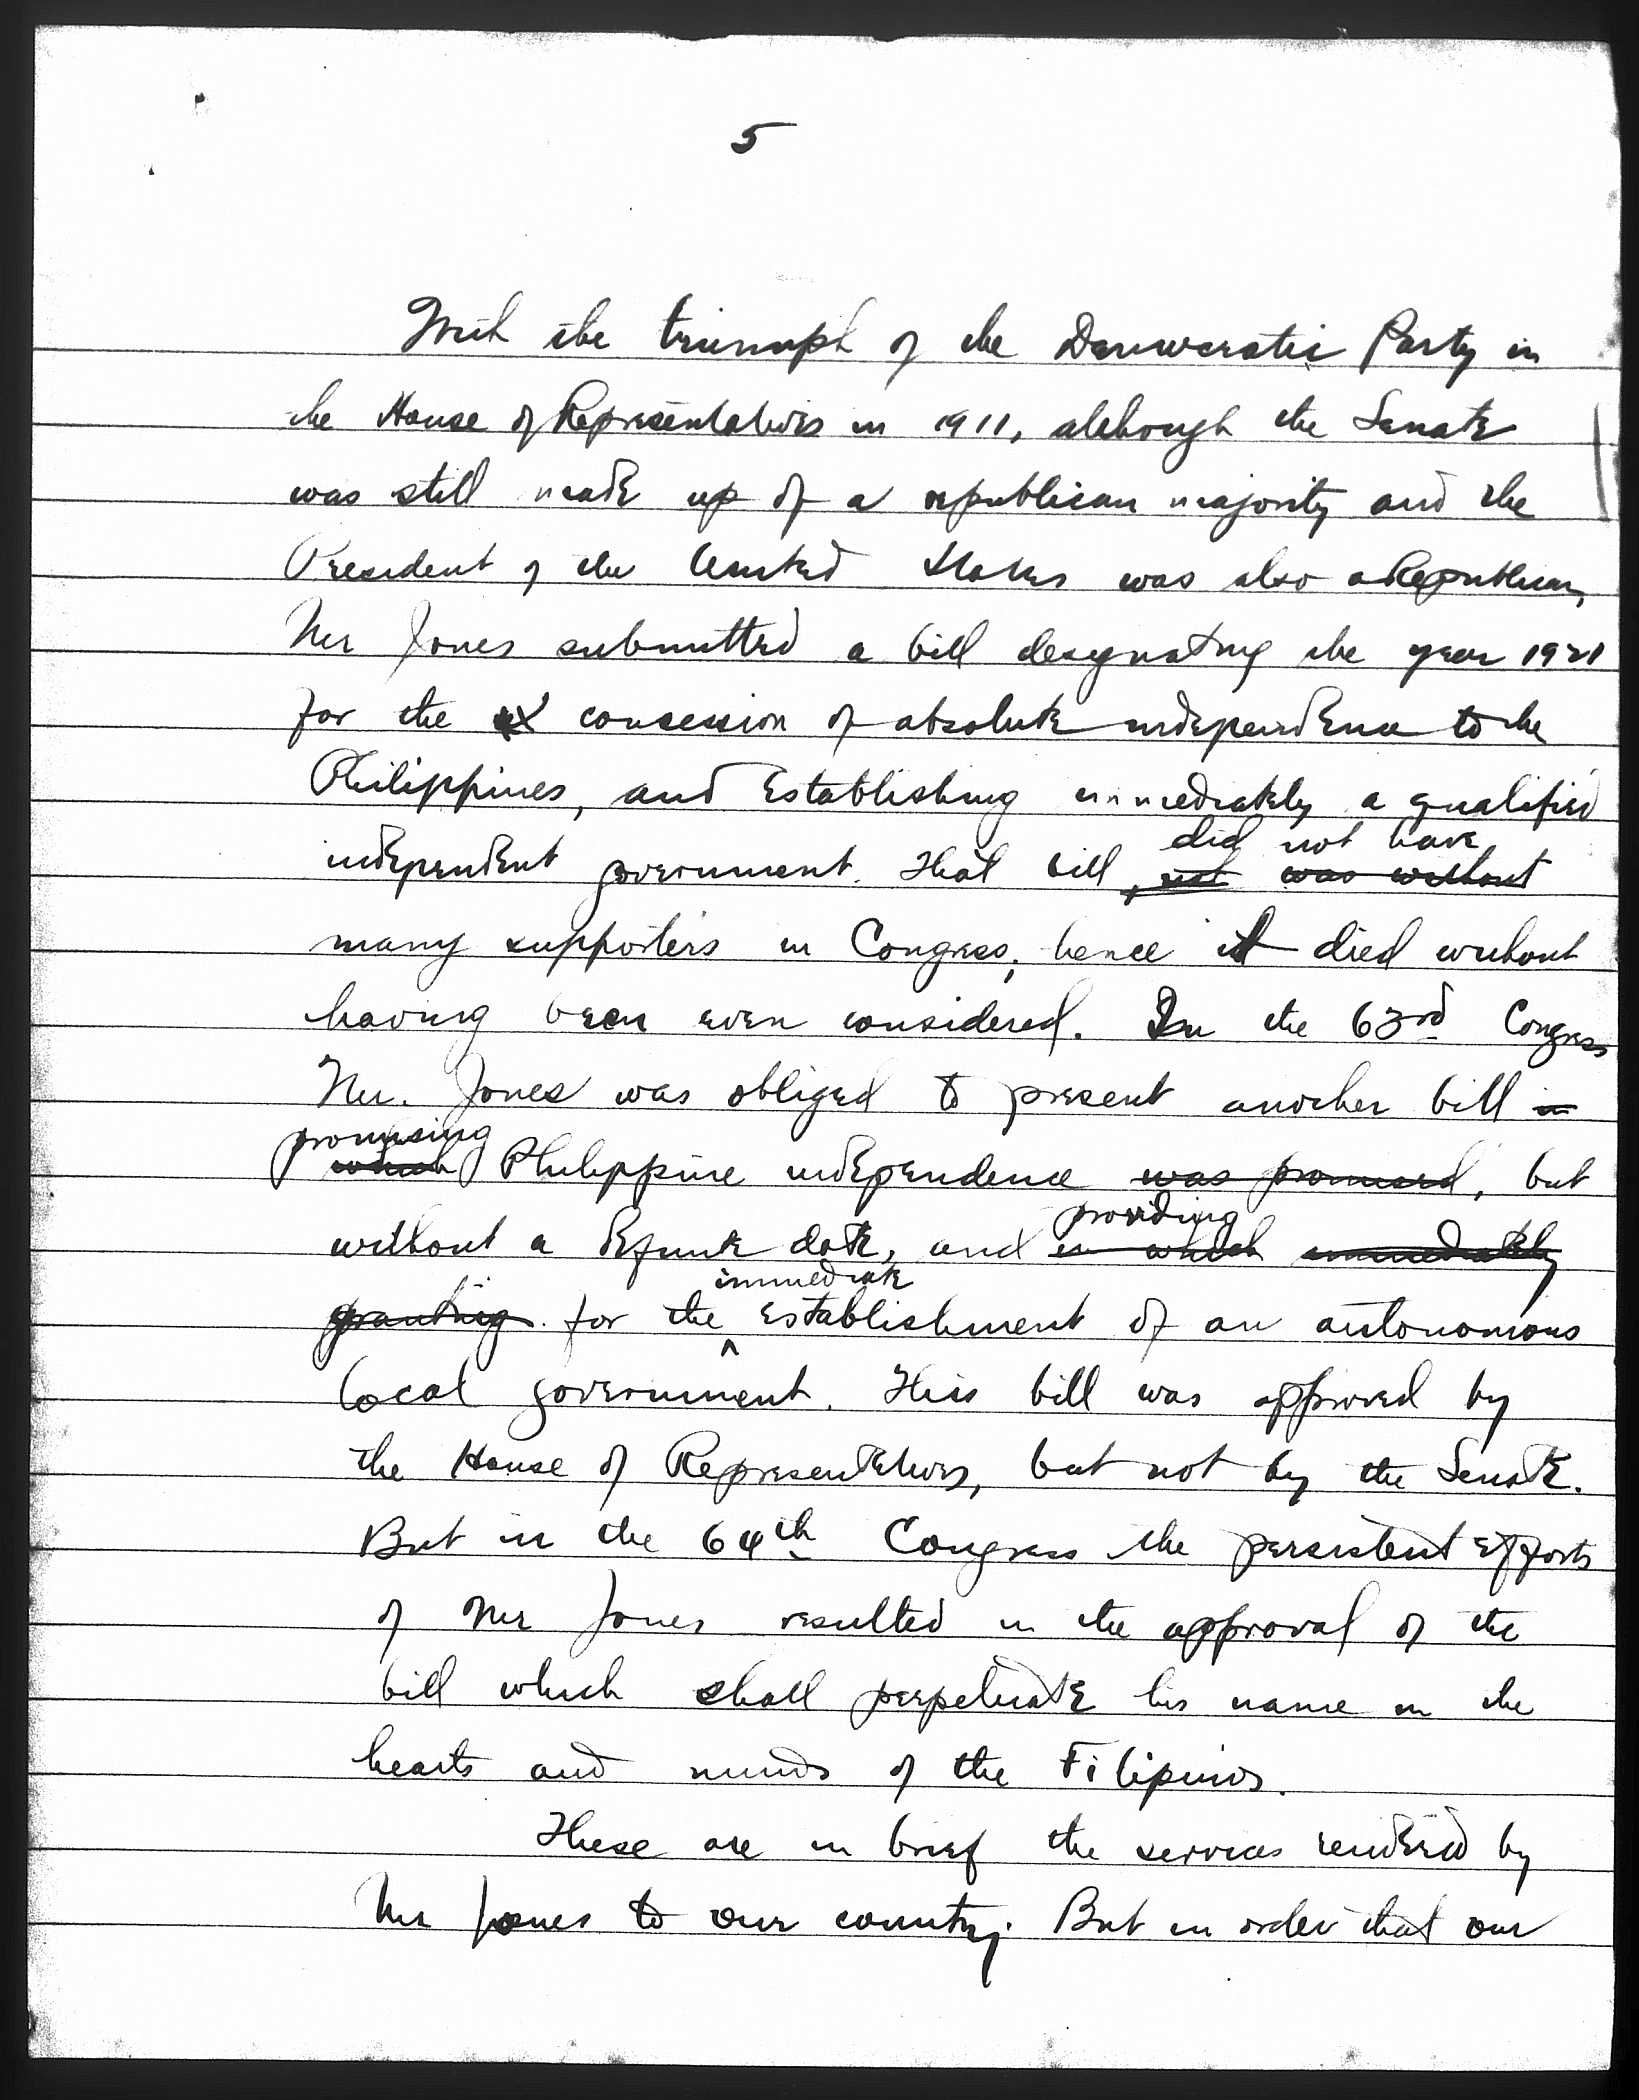 5
With the triumph of the Democratic Party in
the House of Representatives in 1911, although the Senate
was still made up of a republican majority and the
President of the United States was also a Republican,
Mr Jones submitted a bill designating the year 1921
for the concession of absolute independence to the
Philippines, and establishing immediately a qualified
did not have
independent government. That bill not was without
many supporters in Congress; hence it died without
having been even considered. In the 63rd Congress
Mr. Jones was obliged to present another bill in
promising
which Philippine independence was promised, but
providing
without a definite date, and in which immediately
immediate
granting for the establishment of an autonomous
local government. This bill was approved by
the House of Representatives, but not by the Senate.
But in the 64th Congress the persistent efforts
of Mr Jones resulted in the approval of the
bill which shall perpetuate his name in the
hearts and minds of the Filipinos.
These are in brief the services rendered by
Mr Jones to our country. But in order that our